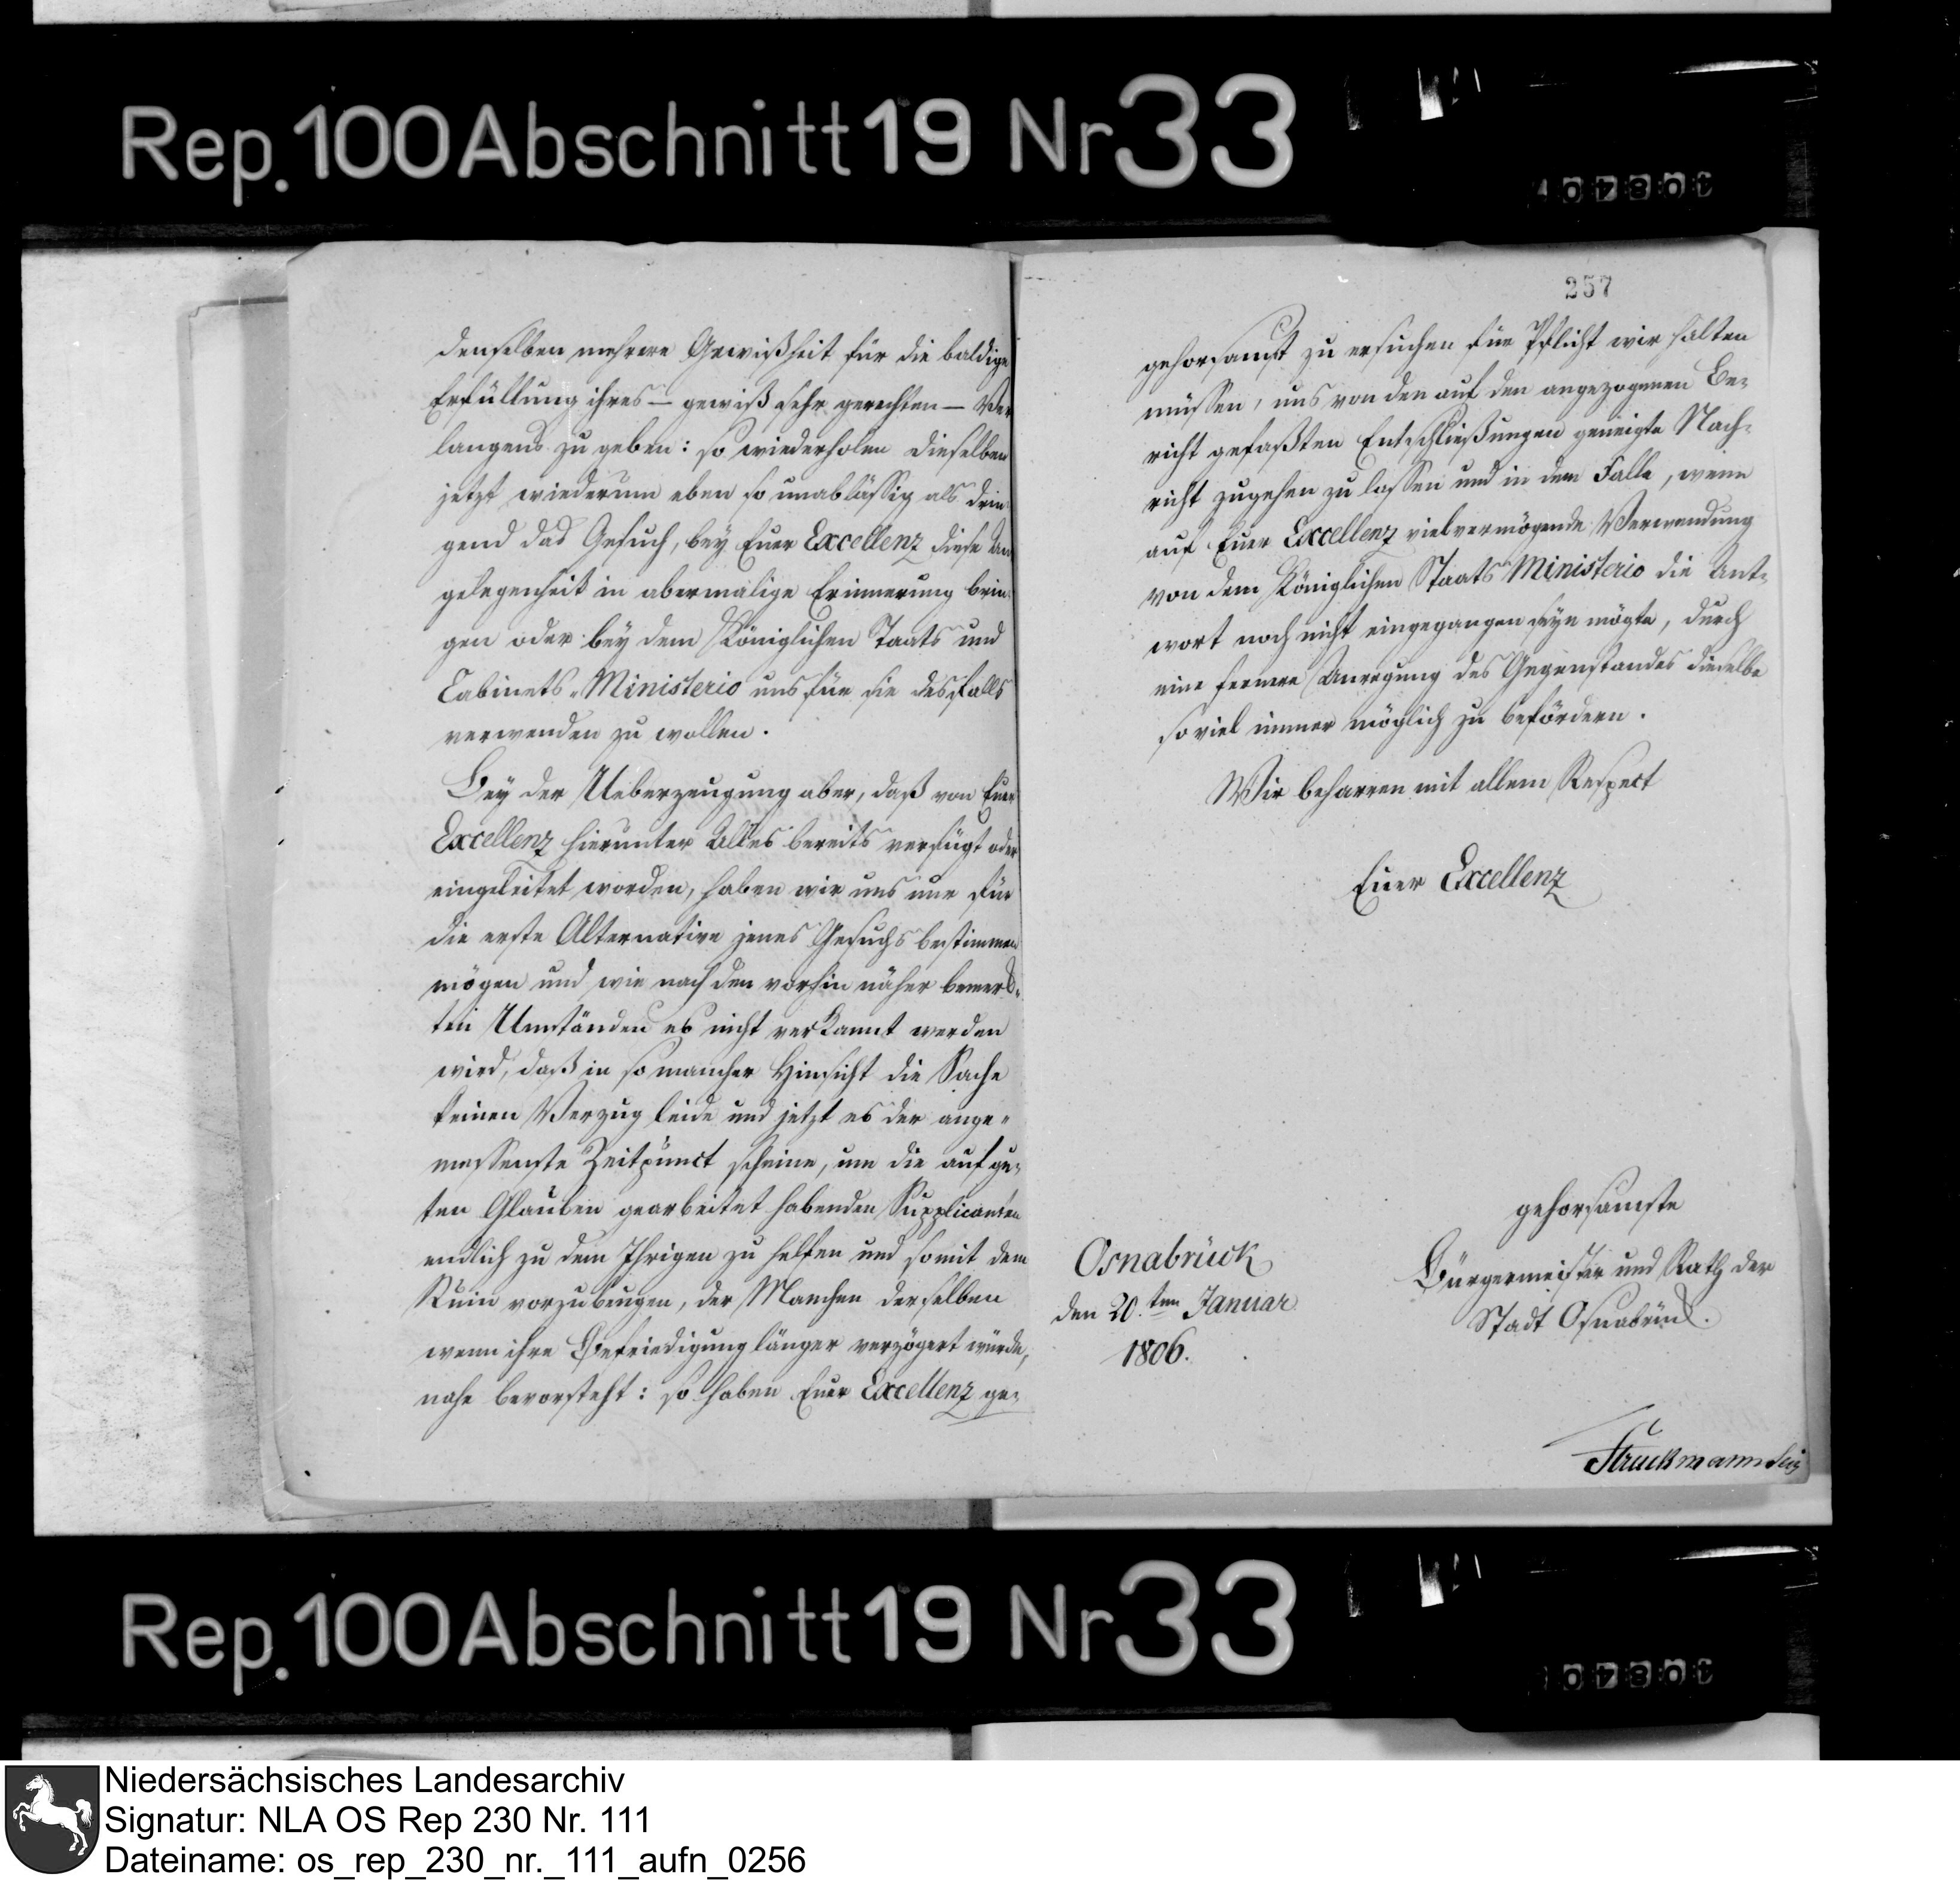 Rep. 100 Abschnitt 19 Nr 33
denselben mehrere Gewißheit für die baldige
Erfüllung ihres – gewiß sehr gerechten – Ver
langens zu geben: so wiederholen dieselben
jetzt wiederum eben so unabläßig als drin
gend das Gesuch, bey Euer Excellenz diese An
gelegenheit in abermalige Erinnerung brin
gen oder bey dem Königlichen Staats und
Cabinets-Ministerio uns für sie desfalls
verwenden zu wollen.
Bey der Ueberzeugung aber, daß von Euer
Excellenz hierunter Alles bereits verfügt oder
eingeleitet worden, haben wir uns nur für
die erste Alternative jenes Gesuchs bestimmen
mögen und wie nach den vorhin näher bemerk-
ten Umständen es nicht verkannt werden
wird, daß in so mancher Hinsicht die Sache
keinen Verzug leide und jetzt es der ange-
messenste Zeitpunct scheine, um die auf gu-
ten Glauben gearbeitet habenden Supplicanten
endlich zu dem Ihrigen zu helfen und somit dem
Ruin vorzubeugen, der Manchen derselben
wenn ihre Befriedigung länger verzögert würde,
nahe bevorsteht: so haben Euer Excellenz ge-
257
gehorsamst zu ersuchen für Pflicht wir halten
müssen, uns von den auf den angezogenen Be-
richt gefaßten Entschließungen geneigte Nach-
richt zugehen zu lassen und in dem Falle, wenn
auf Euer Excellenz vielvermögende Verwendung
von dem Königlichen Staats Ministerio die Ant-
wort noch nicht eingegangen seyn mögte, durch
eine fernere Anregung des Gegenstandes dieselbe
so viel immer möglich zu befördern.
Wir beharren mit allem Respect
Euer Excellenz
gehorsamste
Bürgermeister und Rath der
Stadt Osnabrück.
Osnabrück
den 20.ten Januar
1806.
Struckmann
Rep. 100 Abschnitt 19 Nr 33
Niedersächsisches Landesarchiv
Signatur: NLA OS Rep 230 Nr. 111
Dateiname: os_rep_230_nr._111_aufn_0256